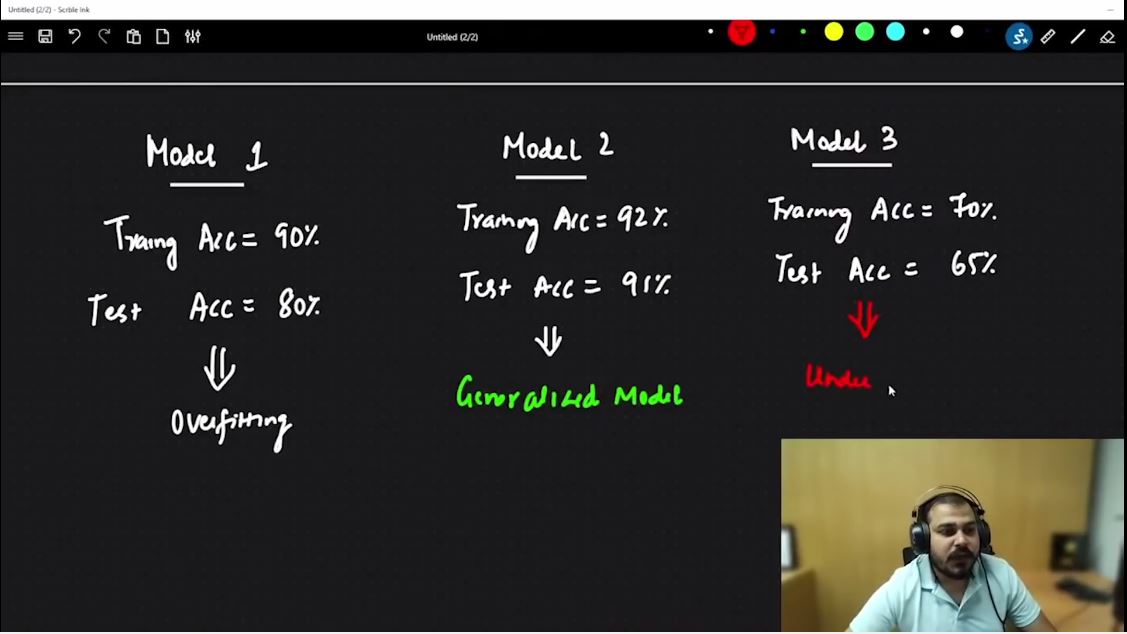 Untitled (2/2) - Scrble Ink
Untitled (2/2)
Model 1
Traing Acc = 90%
Test Acc = 80%
Overfitting
Model 2
Training Acc = 92%
Test Acc = 91%
Generalized Model
Model 3
Training Acc = 70%
Test Acc = 65%
Under